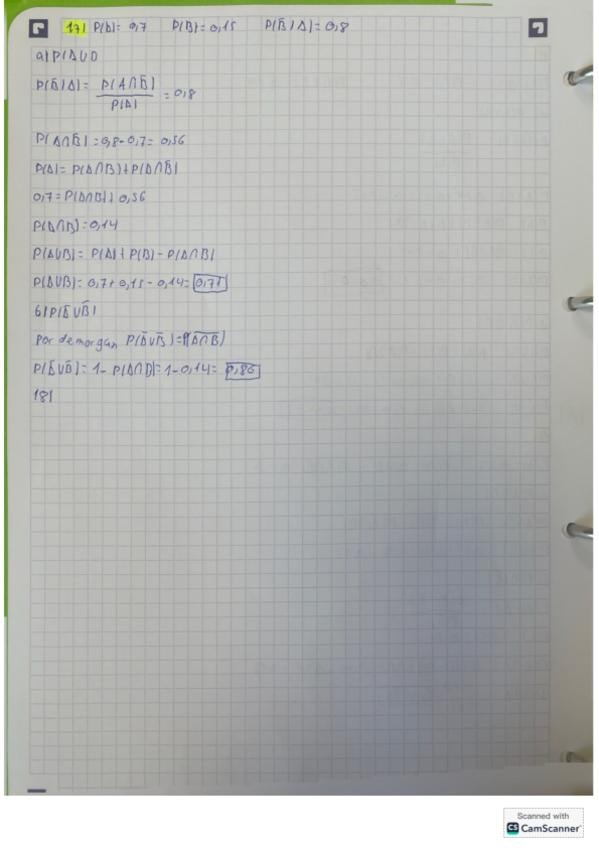 17) P(A)= 0,7 P(B)= 0,15 P(B̅/A)= 0,8
a) P(A∪B
P(B̅/A)= P(A∩B̅) / P(A) = 0,8
P(A∩B̅)=0,8·0,7= 0,56
P(A)= P(A∩B)+P(A∩B̅)
0,7=P(A∩B)+0,56
P(A∩B)=0,14
P(A∪B)= P(A)+P(B)-P(A∩B)
P(A∪B)= 0,7+0,15-0,14= 0,71
b) P(A̅∪B̅)
Por demorgan P(A̅∪B̅)=P(A̅∩̅B̅)
P(A̅∪B̅)= 1- P(A∩B)=1-0,14= 0,86
18)
Scanned with
CS CamScanner